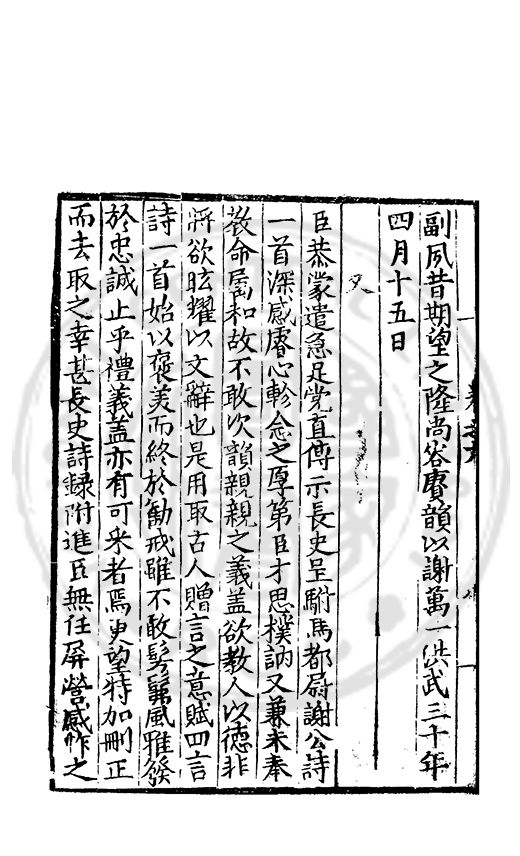 副夙昔期望之隆尚容賡韻以謝萬一洪武三十年
四月十五日
又
臣恭蒙遣急足党直傳示長史呈駙馬都尉謝公詩
一首深感睿心軫念之厚第臣才思樸訥又兼未奉
教命屬和故不敢次韻親親之義盖欲教人以德非
將欲眩耀以文辭也是用取古人贈言之意賦四言
詩一首始以褒美而終於勸戒雖不敢髣髴風雅發
於忠誠止乎禮義盖亦有可采者焉更望特加刪正
而去取之幸甚長史詩錄附進臣無任屏營感怍之